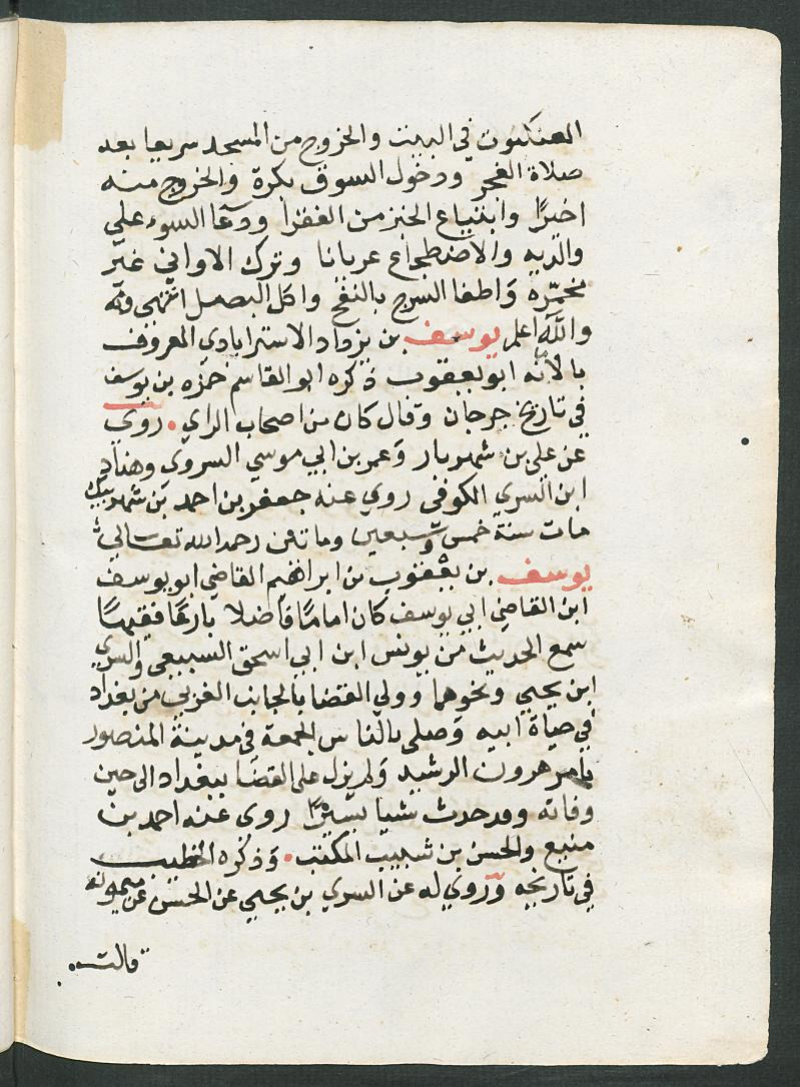 العنكبوت في البيت والخروج من المسجد سريعا بعد
صلاة الفجر ودخول السوق بكرة والخروج منه
اخيرًا وابتياع الخبز من الفقرا ودعا السوء علي
والديه والاضطجاع عريانا وترك الاواني غير
مخمّرة واطفا السرج بالنفخ واكل البصل انتهي
والله اعلم يوسف بن يزداد الاسترابادي المعروف
ابو يعقوب ذكره ابو القاسم حمزه بن يوسف
في تاريخ جرجان وقال كان من اصحاب الراي • روي
عن علي بن شهريار وعمر بن ابي موسي السروي وهناد
ابن السري الكوفي روي عنه جعفر بن احمد بن
مات سنة خمس وسبعين وماتين رحمه الله تعالي
يوسف بن يعقوب بن ابراهيم القاضي ابو يوسف
ابن القاضي ابي يوسف كان امامًا فاضلا بارعًا فقيهًا
سمع الحديث من يونس ابن ابي اسحق السبيعي والسري
ابن يحيي ونحوهما وولي القضا بالجانب الغربي من بغداد
في حياة ابيه وصلي بالناس الجمعة في مدينة المنصور
بامر هرون الرشيد ولم يزل علي القضا ببغداد الي حين
وفاته وقد حدث شيا يسيرًا روي عنه احمد بن
منيع والحسن بن شبيب المكتب • وذكره الخطيب
في تاريخه وروي له عن السري بن يحيي عن الحسن عن ميمونه
قالت